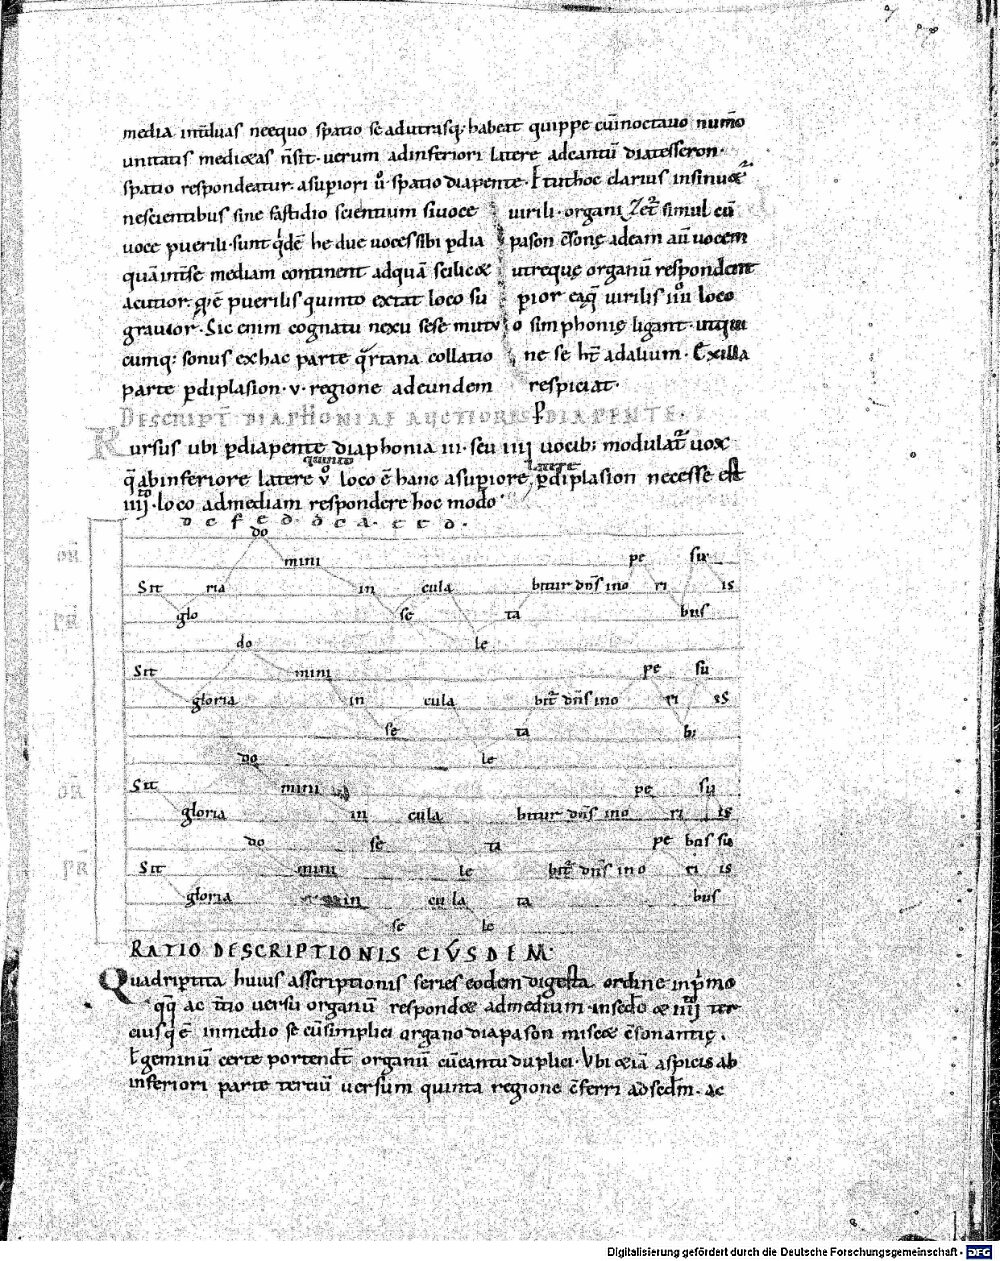 media int̄duas neequo spatio se adutrasq;. habeat quippe cu̅ inoctauo num̄o
unitatis medioctas n̄sit. uerum adinferiori latere adeantu̅ diatesseron.
spatio respondeatur. asup̲iori ū. spatio diapente. Ut hoc clarius insinuet
nescientibus sine fastidio scientium siuoce uirili. organizet simul cu̅
uoce puerili. sunt qde̅ he due uoces sibi p̲dia pason c̄sonę adeam au̅ uocem
qua̅ int̄se mediam continent adqua̅ scilicet utręque organu̅ respondent
acutior. q̄ e̅ puerilis quinto extat loco su p̲ior eaq̄ uirilis iiii loco
grauior. Sic enim cognatu nexu sese mutu o simphonię ligant. utqui
cumq; sonus exhac parte q̄rtana collatio ne se ht̄ adalium. Exilla
parte p̲diplasion. v. regione adeundem respiciat.
DESCRIPT̄ DIAPHONIAE AUCTIORIS P̲DIAPENTE.
Rursus ubi p̲diapente diaphonia iii. seu iiii uocib; modulat̄ uox
quinto latere
q̄ abinferiore latere v̊ loco e̅ hanc asup̲iore p̲diplasion necesse est
iiii. loco admediam respondere hoc modo.
do
mini pe su
Sit ria in cula bitur dn̄s ino ri is
glo se ta bus
OR̄
PR̄
do le
Sit mini pe su
gloria in cula bit̄ dn̄s ino ri is
se ta b;
do le
Sit mini pe su
OR̄
gloria in cula bitur dn̄s ino ri is
do se ta pe bus su
PR̄
Sit mini le bit̄ dn̄s ino ri is
gloria in cu la ta bus
se le
RATIO DESCRIPTIONIS EIUSDEM.
Quadriptita huius asscriptionis series eodem digesta ordine inp̄mo
qq̄ ac t̄tio uersu organu̅ respondet admedium insedo et iiii ter
ciusq e̅ inmedio se cu̅simplici organo diapason miscet c̄sonantię.
geminu̅ certe portendt̄ organu̅ cu̅cantu duplici. Vbi etia̅ aspicis ab
inferiori parte terciu̅ uersum quinta regione c̄ferri adsedm̄. ac
Digitalisierung gefördert durch die Deutsche Forschungsgemeinschaft - DFG